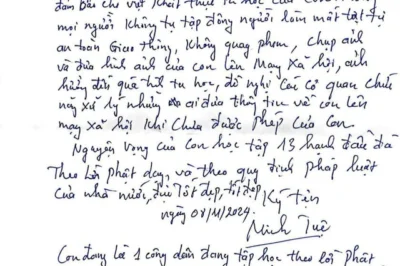 đảm bảo cho vật khất thực tu học của con
mọi người không tụ tập đông người làm mất trật tự
an toàn Giao thông, không quay phim, chụp ảnh
và đưa hình ảnh của con lên mạng xã hội, ảnh
hưởng đến quá trình tu học, đề nghị các cơ quan chức
năng xử lý những ai đưa thông tin về con lên
mạng xã hội khi chưa được phép của con.
Nguyện vọng của con học tập 13 hạnh đầu đà
Theo lời phật dạy, và theo quy định pháp luật
của nhà nước, đời tốt đẹp, tốt đẹp
Ký tên
ngày 08/11/2024.
Minh Tuệ
Con đang là 1 công dân đang tập học theo lời phật